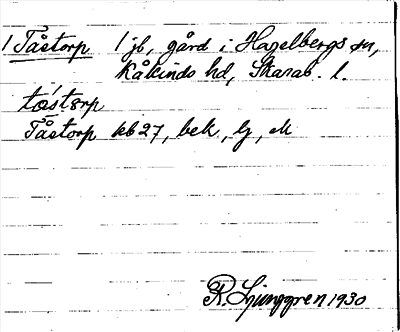 1 Tåstorp 1 jb, gård i Hagelbergs sn,
Kåkinds hd, Skarab. l.
tåstɷrp
Tåstorp kb 27, bek, lj, ek
R. Ljunggren 1930